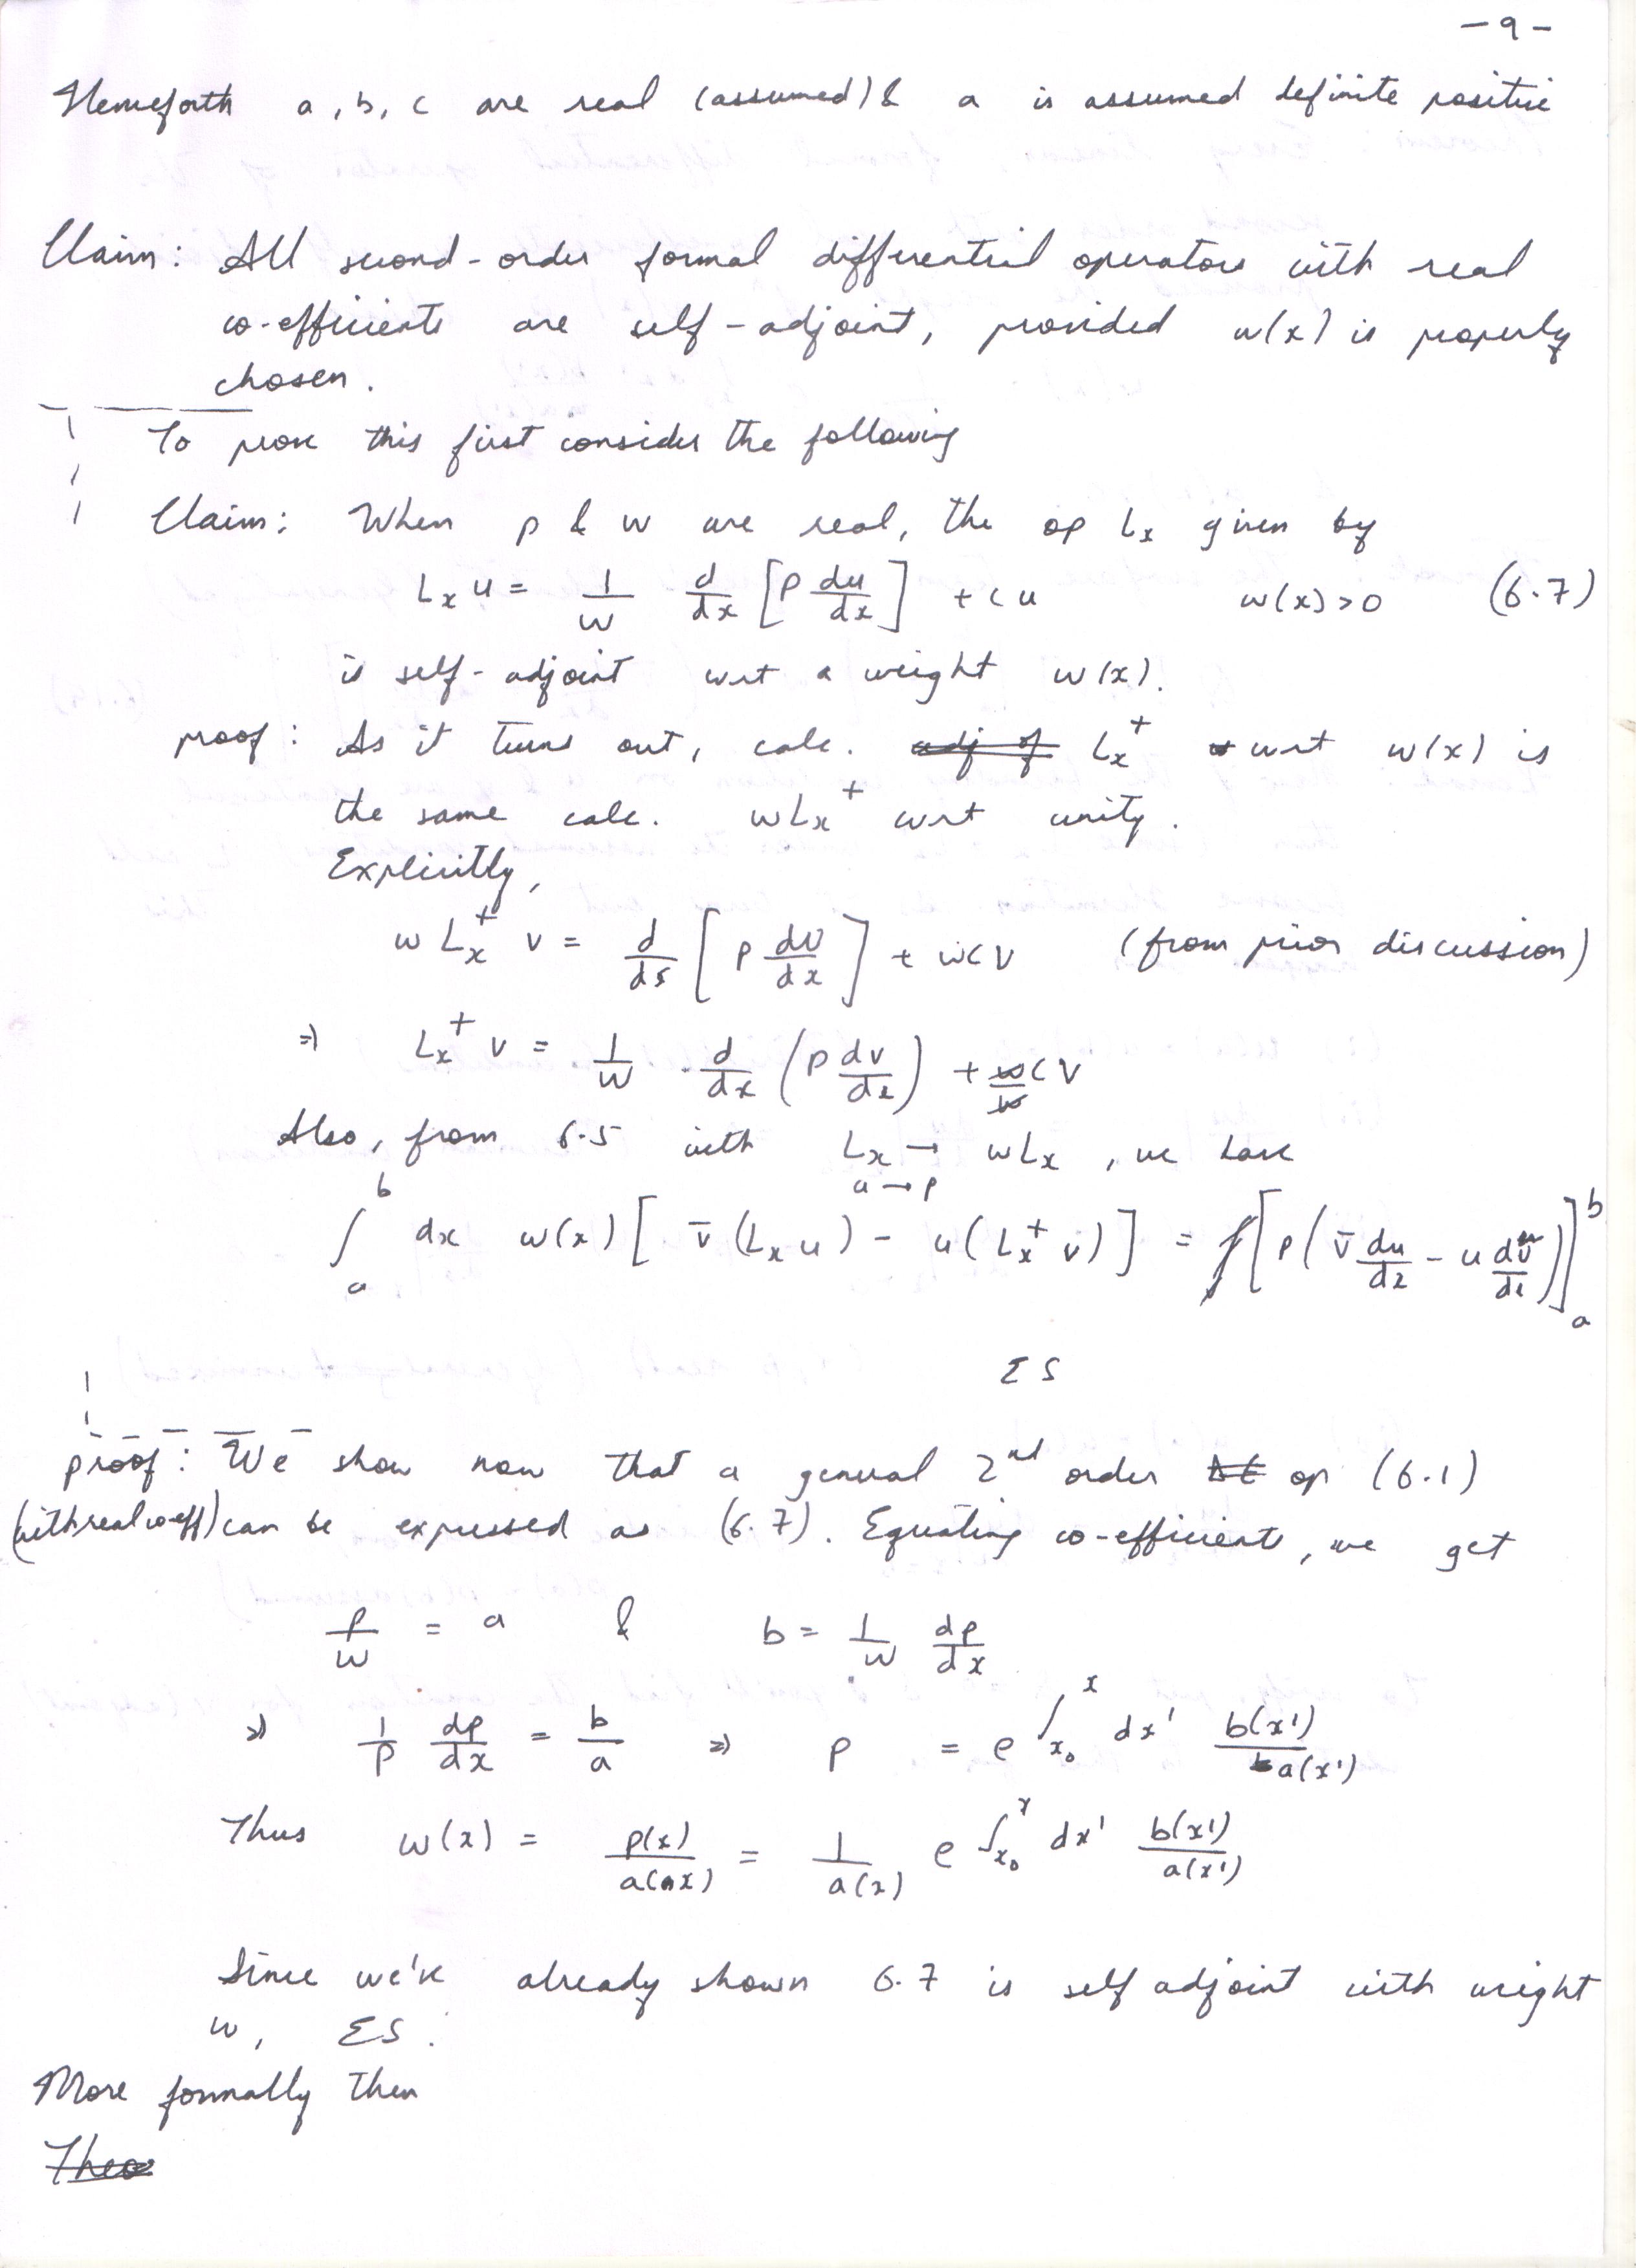 - 9 -
Henceforth a, b, c are real (assumed) & a is assumed definite positive
Claim: All second-order formal differential operators with real
co-efficients are self-adjoint, provided w(x) is properly
chosen.
To prove this first consider the following
Claim: When p & w are real, the op Lx given by
Lx u = 1/w d/dx [p du/dx] + cu w(x) > 0 (6.7)
is self-adjoint wrt a weight w(x).
proof: As it turns out, calc. adj of Lx^+ wrt w(x) is
the same calc. wLx^+ wrt unity.
Explicitly,
w Lx^+ v = d/dx [p dv/dx] + wcv (from prior discussion)
⇒ Lx^+ v = 1/w · d/dx (p dv/dx) + w/w cv
Also, from 6.5 with Lx → wLx, we have
a → p
∫_a^b dx w(x) [ v̄ (Lx u) - u (Lx^+ v̄) ] = [p (v̄ du/dx - u dv̄/dx)]_a^b
ΣS
proof: We show now that a general 2nd order op (6.1)
(with real co-eff) can be expressed as (6.7). Equating co-efficients, we get
p/w = a & b = 1/w dp/dx
⇒ 1/p dp/dx = b/a ⇒ p = e^∫_{x0}^x dx' b(x')/a(x')
Thus w(x) = p(x)/a(x) = 1/a(x) e^∫_{x0}^x dx' b(x')/a(x')
Since we've already shown 6.7 is self adjoint with weight
w, ΣS.
More formally then
Theo